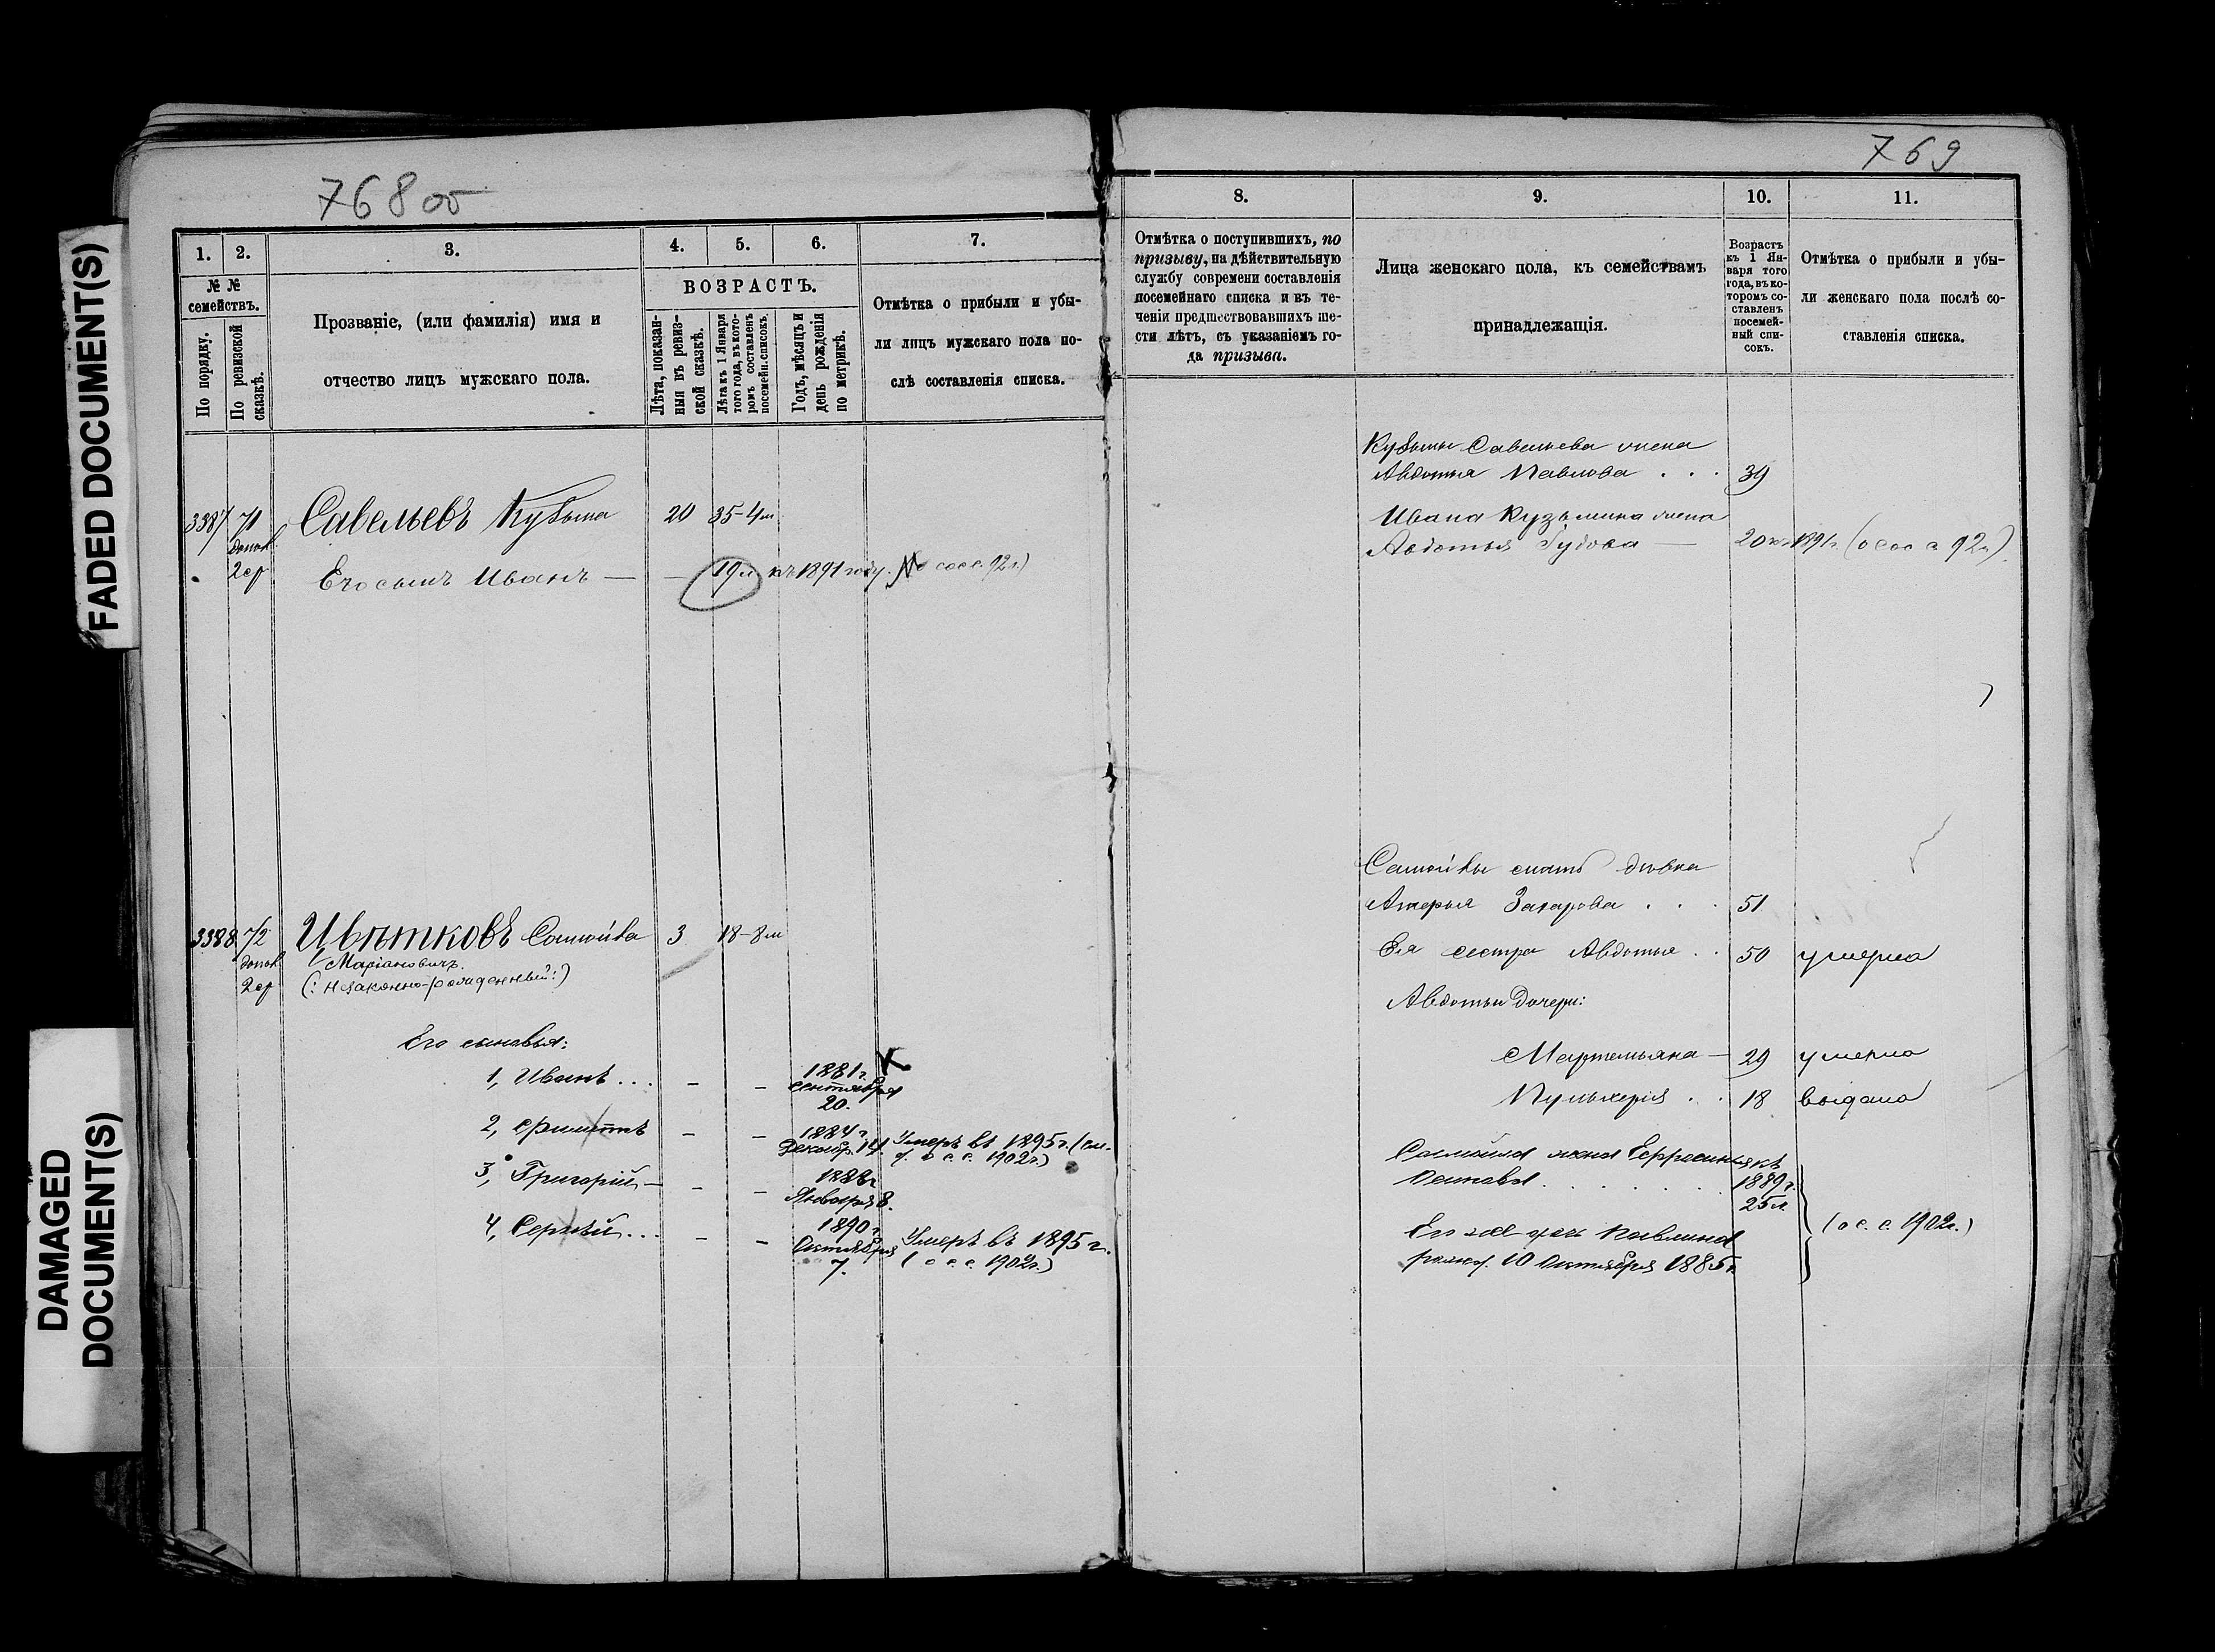 FADED DOCUMENT(S)
DAMAGED
DOCUMENT(S)
768 об
1. 2. 3. 4. 5. 6. 7.
№ №
семействъ.
По порядку.
По ревизской
сказкѣ.
Прозваніе, (или фамилія) имя и
отчество лицъ мужскаго пола.
ВОЗРАСТЪ.
Лѣта, показан-
ныя въ ревиз-
ской сказкѣ.
Лѣта къ 1 Января
того года, въ кото-
ромъ составленъ
посемейн. списокъ.
Годъ, мѣсяцъ и
день рожденія
по метрикѣ.
Отмѣтка о прибыли и убы-
ли лицъ мужскаго пола по-
слѣ составленія списка.
3387 71 Савельевъ Кузьма 20 35-4м
допол
2 ср Его сынъ Иванъ — — 19 л. къ 1891 году. (о с. с. 92 г.)
3388 72 Цвѣтковъ Самойла 3 18-8м
допол Маріановичъ.
2 ср (: незаконно-рожденный:)
Его сыновья:
1, Иванъ . . . - - 1881 г.
Сентября
20.
2, Филиппъ - - 1884 г.
Декабр. 14. Умеръ въ 1895 г. (см.
о. с. с. 1902 г.)
3, Григорій - - - 1888 г
Января 8.
4, Сергѣй . . . - - 1890 г.
Октября
7. Умеръ въ 1895 г.
(о с. с. 1902 г.)
769
8. 9. 10. 11.
Отмѣтка о поступившихъ, по
призыву, на дѣйствительную
службу современи составленія
посемейнаго списка и въ те-
ченіи предшествовавшихъ ше-
сти лѣтъ, съ указаніемъ го-
да призыва.
Лица женскаго пола, къ семействамъ
принадлежащія.
Возрастъ
къ 1 Ян-
варя того
года, въ ко-
торомъ со-
ставленъ
посемей-
ный спи-
сокъ.
Отмѣтка о прибыли и убы-
ли женскаго пола послѣ со-
ставленія списка.
Кузьмы Савельева жена
Авдотья Павлова . . . 39
Ивана Кузьмина жена
Авдотья — 20 къ 1891 г. (о с. с. 92 г.)
Самойлы мать дѣвка
Захарова . . . 51
Ея сестра Авдотья . . 50 умерла
Авдотьи дочери:
Мартемьяна — 29 умерла
Пульхерія . . 18 выдана
Самойла жена Ефросинья къ
Осипова . . . . . . 1889 г.
25 л.
Его же дочь Павлина
рожд. 10 Октября 1885 г.
(о с. с. 1902 г.)